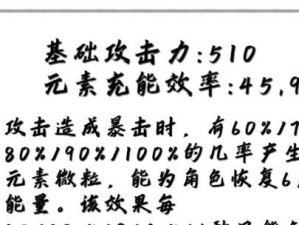 基础攻击力:510
元素充能效率:45,9
攻击造成暴击时,有60%/7
80%/90%/100%的几率产生
元素微粒,能为角色恢复6,
能量。该效果每